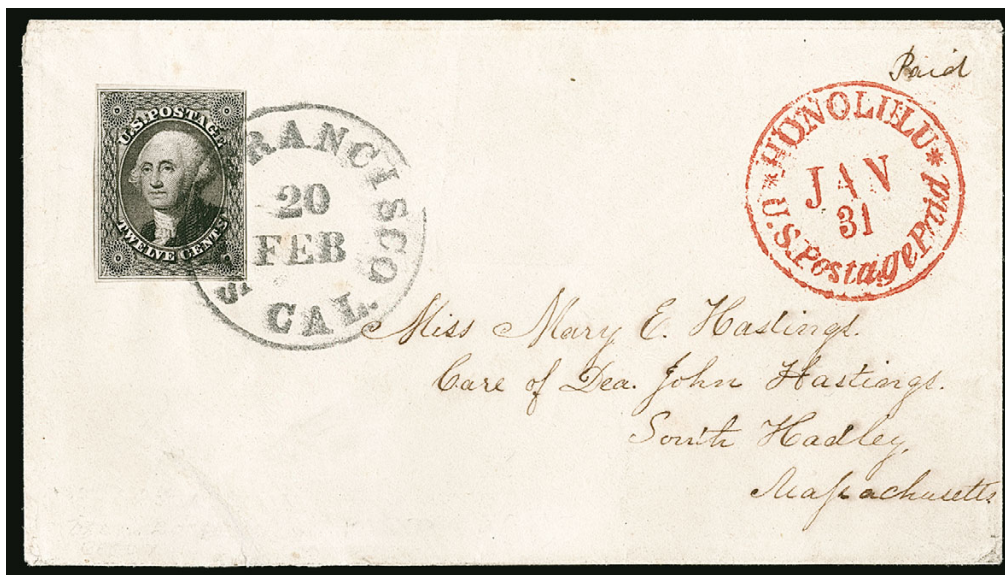 Paid
U.S. POSTAGE
TWELVE CENTS
SAN FRANCISCO
20
FEB
CAL.
*HONOLULU*
JAN
31
U.S. Postage Paid
Miss Mary E. Hastings.
Care of Dea. John Hastings.
South Hadley,
Massachusetts